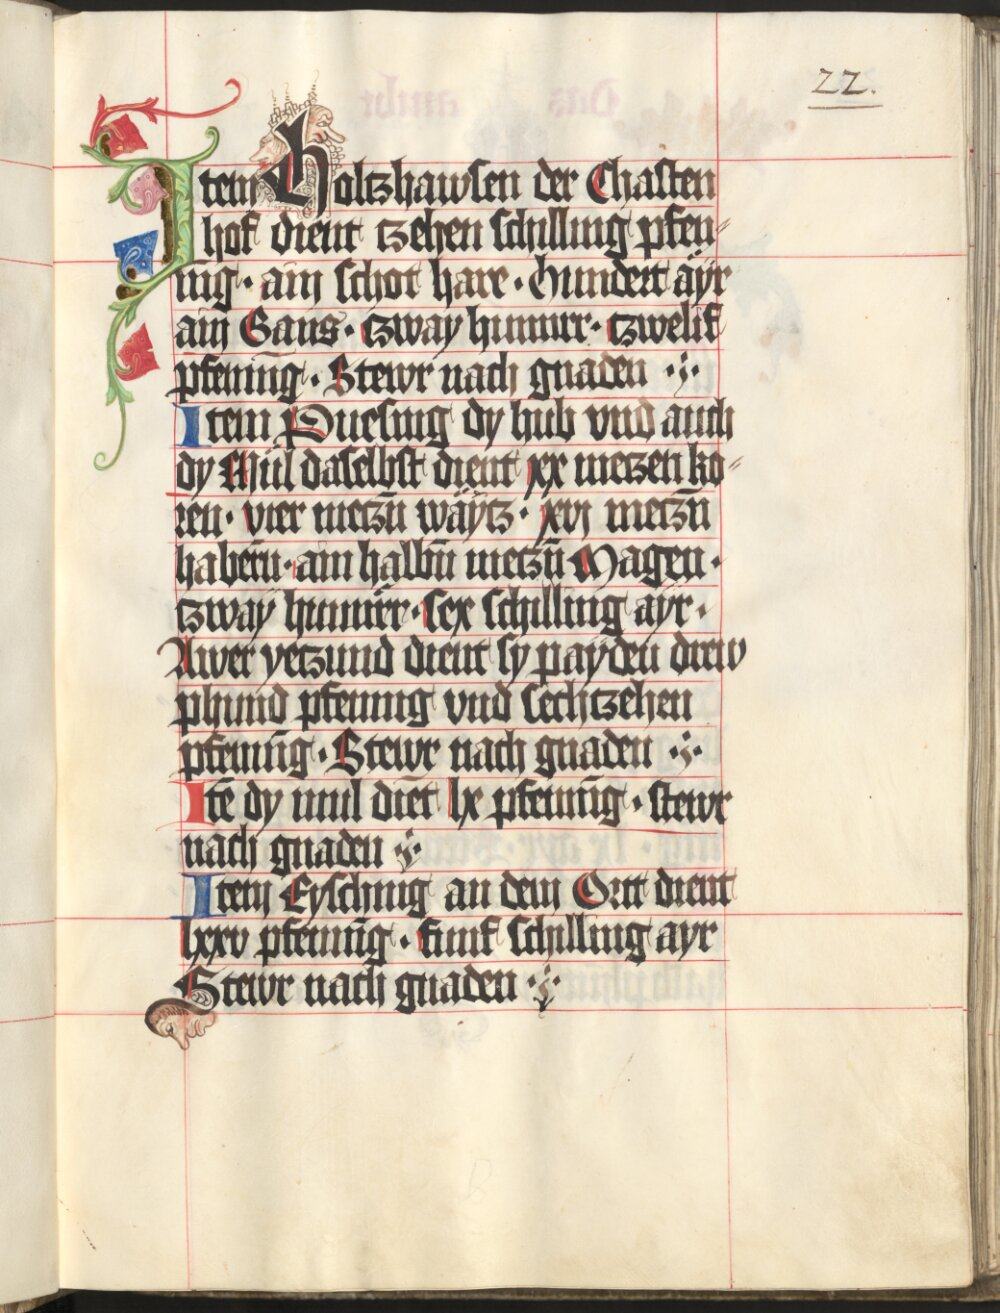 22.
Item Holtzhawsen der Chasten
hof dient tzehen schilling pfen⸗
nig · ain schot hare · Hundert äyr
ain Gans · tzway hunner · tzwelif
pfening̅ · Stewr nach gnaden ·:·
Item Puesing dy hub vnd auch
dy Mül daselbst dient xx metzen ko⸗
ren · vier metzn̅ wäytz · xvj metzn̅
habern̅ · ain halbn̅ metzn̅ Magen ·
tzway hunner · sex schilling ayr ·
Awer yetzund dient sy payden drew
phund pfennig vnd sechtzehen
pfening̅ · Stewr nach gnaden ·:·
Ite̅ dy mul die̅t lx pfening̅ · stewr
nach gnaden ·:·
Item Eysching an dem Ortt dient
lxxv pfening̅ · funf schilling ayr
Stewr nach gnaden ·:·